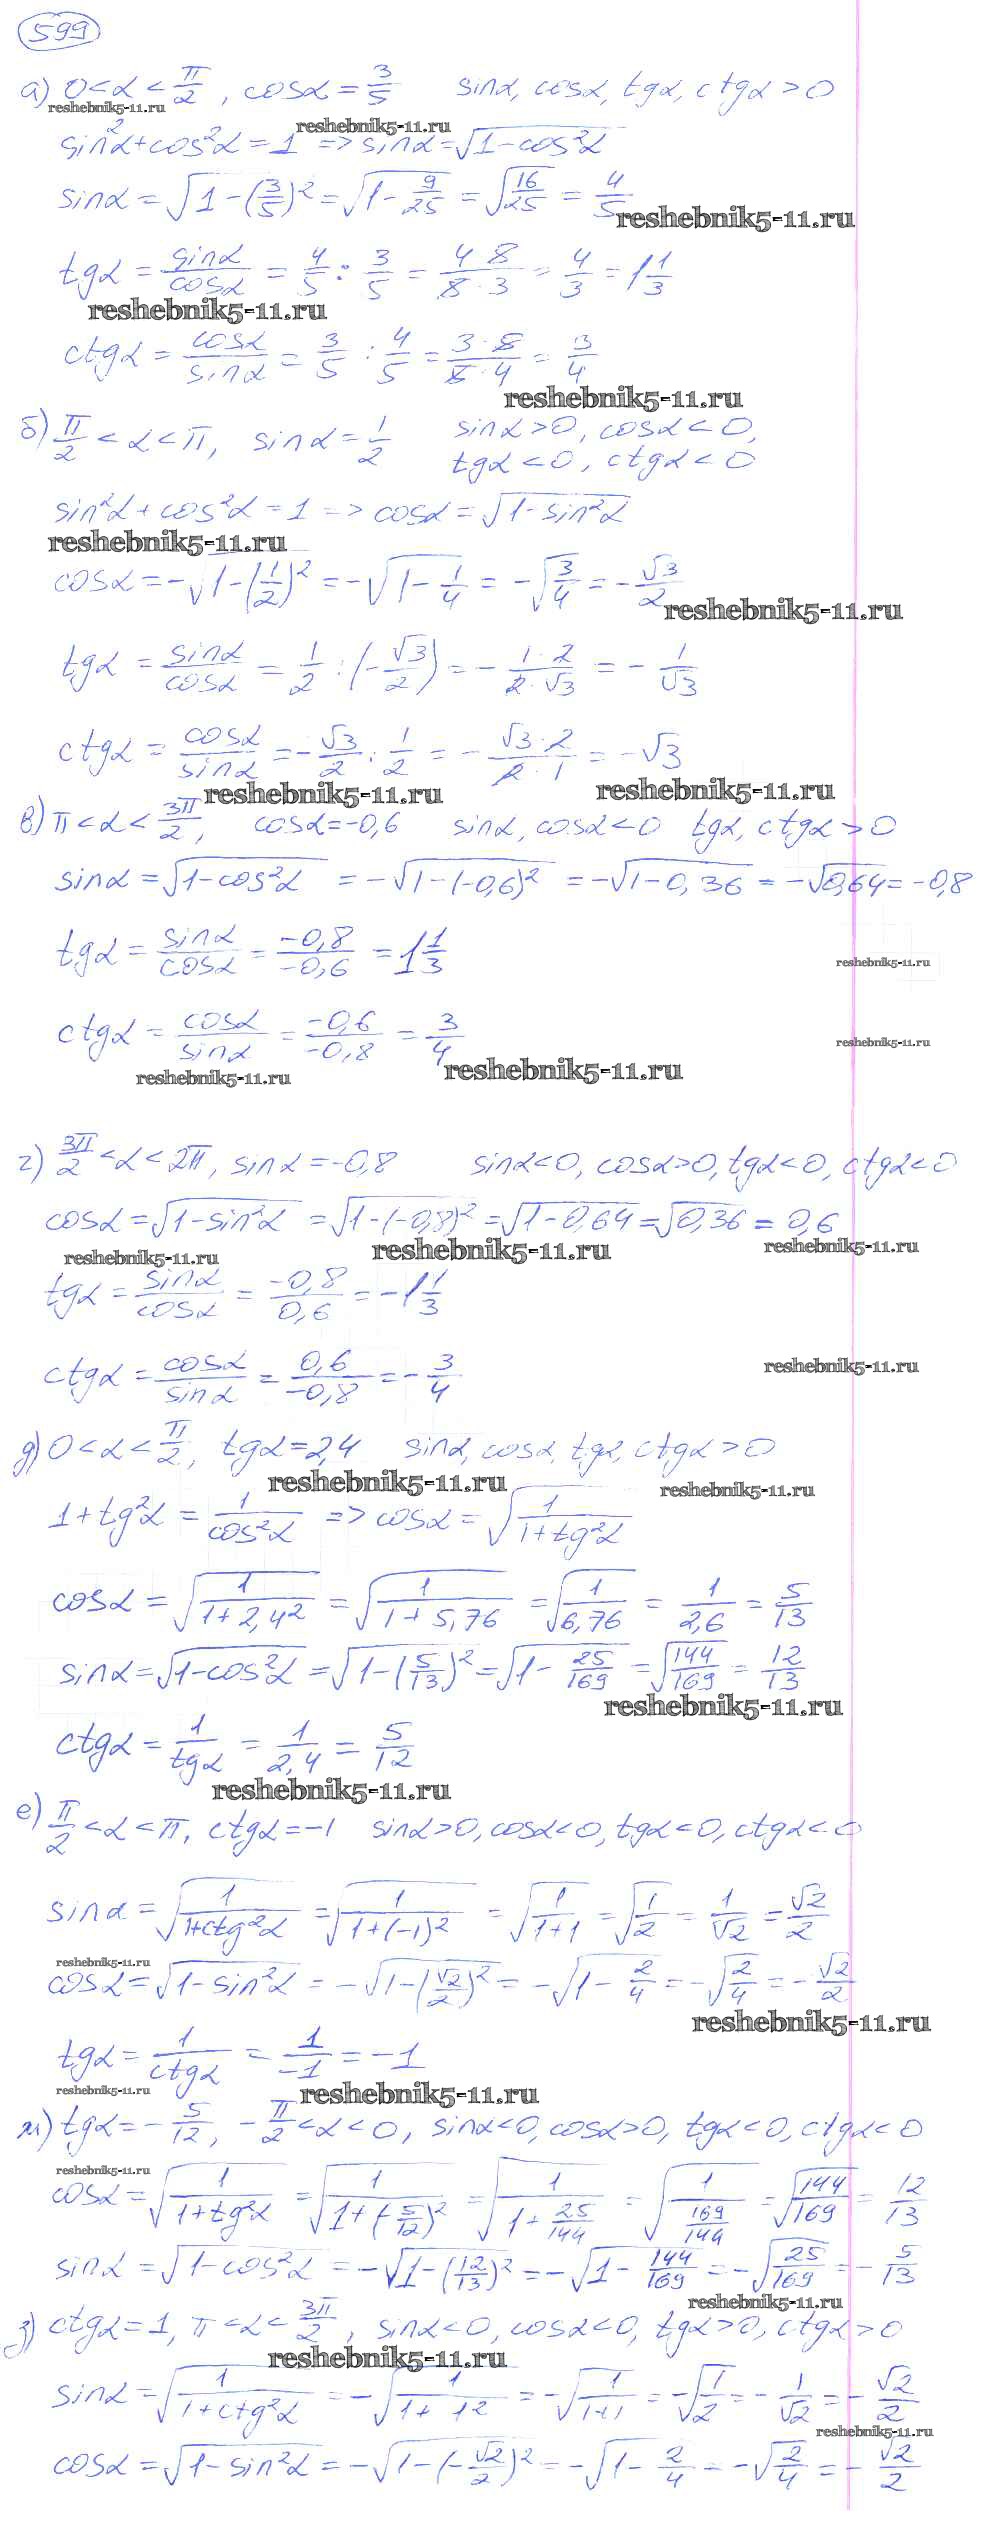 599
а) 0<α<π/2, cosα=3/5 sinα, cosα, tgα, ctgα>0
reshebnik5-11.ru
reshebnik5-11.ru
sin²α+cos²α=1 => sinα=√(1-cos²α)
sinα=√(1-(3/5)²)=√(1-9/25)=√(16/25)=4/5
reshebnik5-11.ru
tgα=sinα/cosα=4/5:3/5=(4·5)/(5·3)=4/3=1 1/3
reshebnik5-11.ru
ctgα=cosα/sinα=3/5:4/5=(3·5)/(5·4)=3/4
reshebnik5-11.ru
б) π/2<α<π, sinα=1/2 sinα>0, cosα<0,
tgα<0, ctgα<0
sin²α+cos²α=1 => cosα=√(1-sin²α)
reshebnik5-11.ru
cosα=-√(1-(1/2)²)=-√(1-1/4)=-√(3/4)=-√3/2
reshebnik5-11.ru
tgα=sinα/cosα=1/2:(-√3/2)=-(1·2)/(2·√3)=-1/√3
ctgα=cosα/sinα=-√3/2:1/2=-(√3·2)/(2·1)=-√3
reshebnik5-11.ru
reshebnik5-11.ru
в) π<α<3π/2, cosα=-0,6 sinα, cosα<0 tgα, ctgα>0
sinα=√(1-cos²α)=-√(1-(-0,6)²)=-√(1-0,36)=-√0,64=-0,8
tgα=sinα/cosα=-0,8/-0,6=1 1/3
reshebnik5-11.ru
ctgα=cosα/sinα=-0,6/-0,8=3/4
reshebnik5-11.ru
reshebnik5-11.ru
reshebnik5-11.ru
г) 3π/2<α<2π, sinα=-0,8 sinα<0, cosα>0, tgα<0, ctgα<0
cosα=√(1-sin²α)=√(1-(-0,8)²)=√(1-0,64)=√0,36=0,6
reshebnik5-11.ru
reshebnik5-11.ru
reshebnik5-11.ru
tgα=sinα/cosα=-0,8/0,6=-1 1/3
ctgα=cosα/sinα=0,6/-0,8=-3/4
reshebnik5-11.ru
д) 0<α<π/2, tgα=2,4 sinα, cosα, tgα, ctgα>0
reshebnik5-11.ru
reshebnik5-11.ru
1+tg²α=1/cos²α => cosα=√(1/(1+tg²α))
cosα=√(1/(1+2,4²))=√(1/(1+5,76))=√(1/6,76)=1/2,6=5/13
sinα=√(1-cos²α)=√(1-(5/13)²)=√(1-25/169)=√(144/169)=12/13
reshebnik5-11.ru
ctgα=1/tgα=1/2,4=5/12
reshebnik5-11.ru
е) π/2<α<π, ctgα=-1 sinα>0, cosα<0, tgα<0, ctgα<0
sinα=√(1/(1+ctg²α))=√(1/(1+(-1)²))=√(1/(1+1))=√(1/2)=1/√2=√2/2
reshebnik5-11.ru
cosα=√(1-sin²α)=-√(1-(√2/2)²)=-√(1-2/4)=-√(2/4)=-√2/2
reshebnik5-11.ru
tgα=1/ctgα=1/-1=-1
reshebnik5-11.ru
reshebnik5-11.ru
ж) tgα=-5/12, -π/2<α<0, sinα<0, cosα>0, tgα<0, ctgα<0
reshebnik5-11.ru
cosα=√(1/(1+tg²α))=√(1/(1+(-5/12)²))=√(1/(1+25/144))=√(1/(169/144))=√(144/169)=12/13
sinα=√(1-cos²α)=-√(1-(12/13)²)=-√(1-144/169)=-√(25/169)=-5/13
reshebnik5-11.ru
з) ctgα=1, π<α<3π/2, sinα<0, cosα<0, tgα>0, ctgα>0
reshebnik5-11.ru
sinα=√(1/(1+ctg²α))=-√(1/(1+1²))=-√(1/(1+1))=-√(1/2)=-1/√2=-√2/2
reshebnik5-11.ru
cosα=√(1-sin²α)=-√(1-(-√2/2)²)=-√(1-2/4)=-√(2/4)=-√2/2